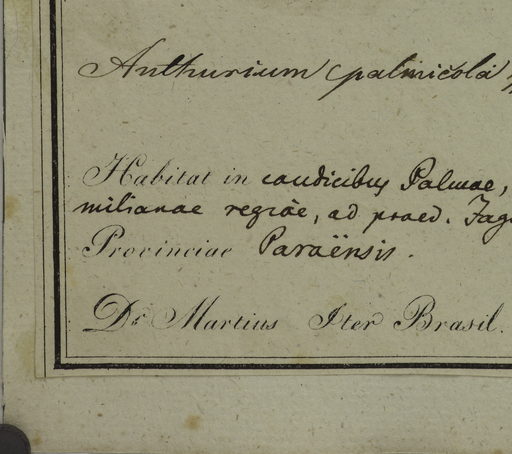 Anthurium palmicola
Habitat in caudicibus Palmae,
milianae regiae, ad praed. Jag
Provinciae Paraënsis.
Dr. Martius Iter Brasil.